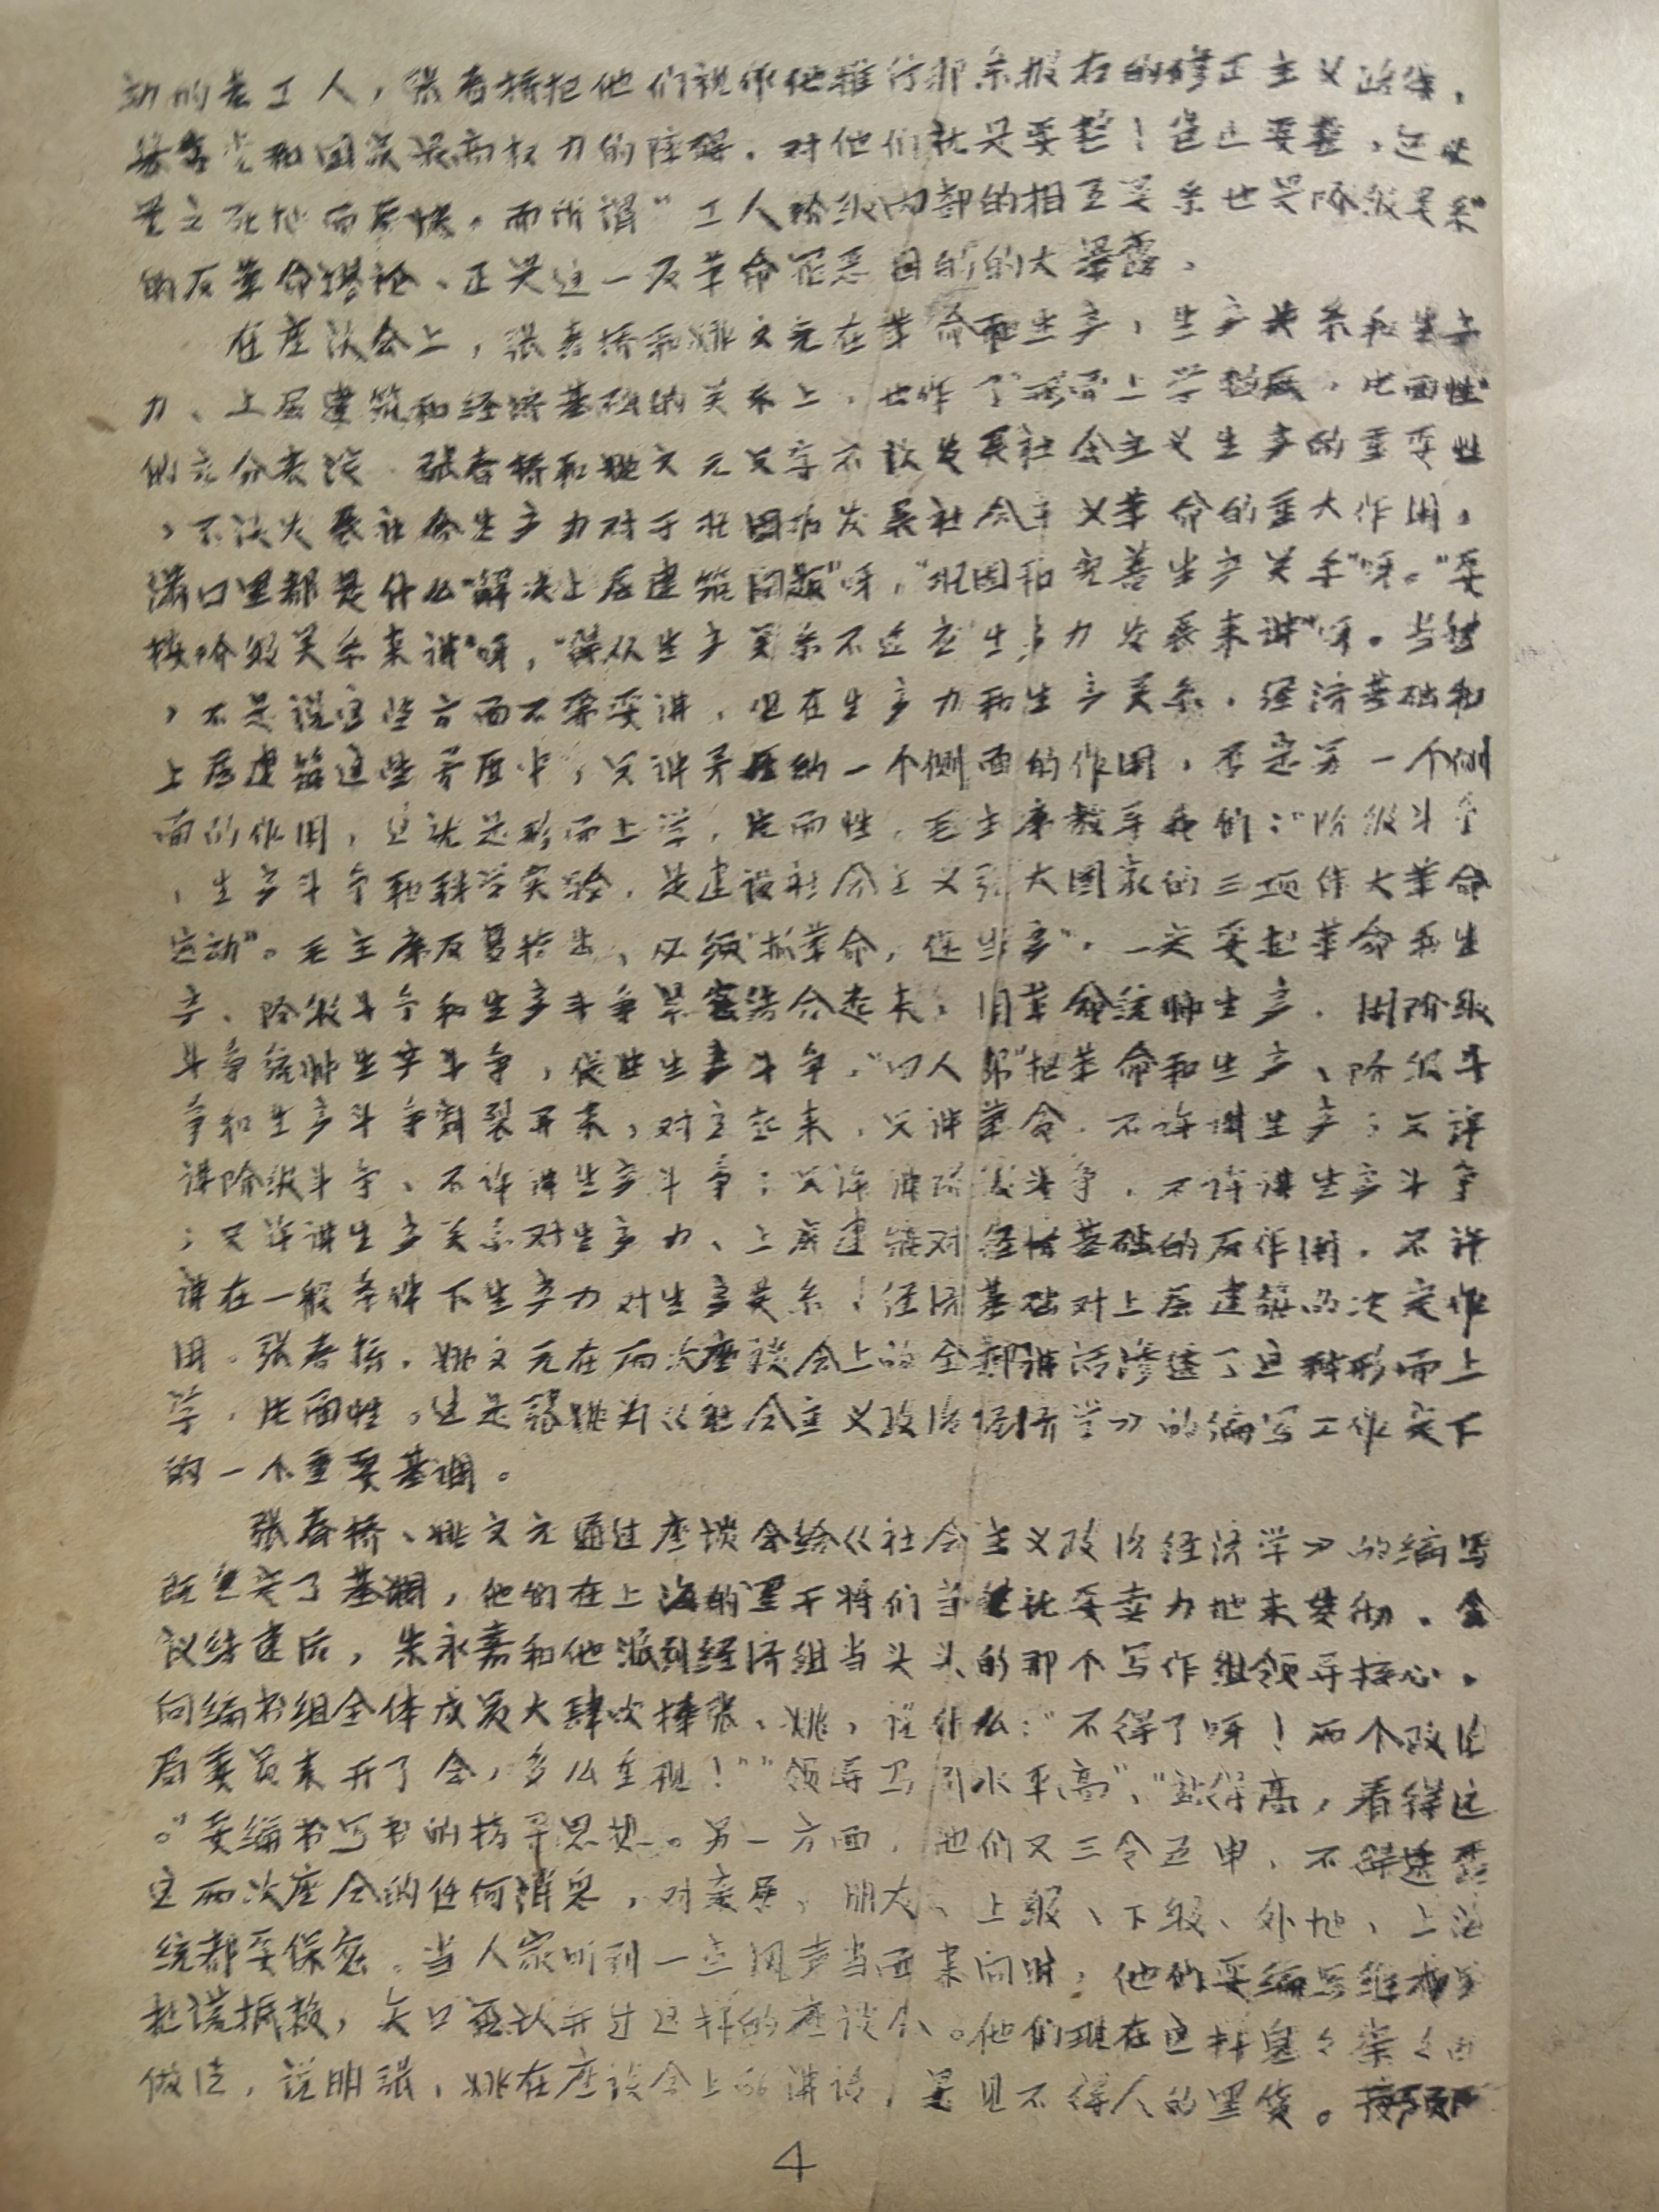 动的老工人，张春桥把他们视作他推行那条极右的修正主义路线，
党和国家最高权力的障碍，对他们就是要整！
置之死地而后快。而所谓“工人阶级内部的相互关系也是阶级关系”
的反革命谬论、正是这一反革命罪恶目的的大暴露。
在座谈会上，张春桥和姚文元在革命和生产，生产关系和生产
力、上层建筑和经济基础的关系上，也作了“形而上学猖厥，片面性”
的充分表演 张春桥和姚文元只字不谈发展社会主义生产的重要性
，不谈发展社会生产力对于巩固和发展社会主义革命的重大作用，
满口里都是什么“解决上层建筑问题”呀，“巩固和完善生产关系”呀。“要
按阶级关系来讲”呀，“得从生产关系不适应生产力发展来讲”呀。当然
，不是说这些方面不需要讲，但在生产力和生产关系，经济基础和
上层建筑这些矛盾中，只讲矛盾的一个侧面的作用，否定另一个侧
面的作用，这就是形而上学，片面性，毛主席教导我们：“阶级斗争
，生产斗争和科学实验，是建设社会主义强大国家的三项伟大革命
运动”。毛主席反复指出、必须“抓革命，促生产”，一定要把革命和生
产、阶级斗争和生产斗争紧密结合起来，用革命统帅生产，用阶级
斗争统帅生产斗争，促进生产斗争，“四人帮”把革命和生产、阶级斗
争和生产斗争割裂开来，对立起来，只讲革命，不许讲生产；只许
讲阶级斗争、不许讲生产斗争；只许讲阶级斗争，不许讲生产斗争
；只许讲生产关系对生产力、上层建筑对经济基础的反作用，不许
讲在一般条件下生产力对生产关系，经济基础对上层建筑的决定作
用。张春桥，姚文元在两次座谈会上的全部讲话渗透了这种形而上
学，片面性。这是张姚为《社会主义政治经济学》的编写工作定下
的一个重要基调。
张春桥、姚文元通过座谈会给《社会主义政治经济学》的编写
既已定了基调，他们在上海的黑干将们当然就要卖力地来贯彻。会
议结束后，朱永嘉和他派到经济组当头头的那个写作组领导核心，
向编书组全体成员大肆吹捧张、姚，说什么：“不得了呀！两个政治
局委员来开了会，多么重视！”“领导 水平高”、“站得高，看得远
。”要编书写书的指导思想。另一方面，他们又三令五申，不得透露
这两次座会的任何消息，对亲属、朋友、上级、下级、外地、上海
统都要保密。当人家听到一些风声当面来问时，他们要编写组成员
扯谎抵赖，矢口否认开过这样的座谈会。他们现在这样鬼々祟々的
做法，说明张，姚在座谈会上的讲话，是见不得人的黑货。
4